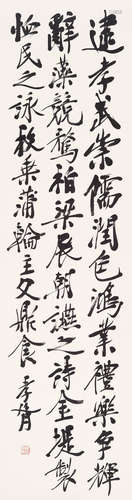 逮孝武崇儒潤色鴻業禮樂爭輝
辭藻競騖柏梁展朝讌之詩金堤製
恤民之詠枚乘蒲輪主父鼎食 孝胥